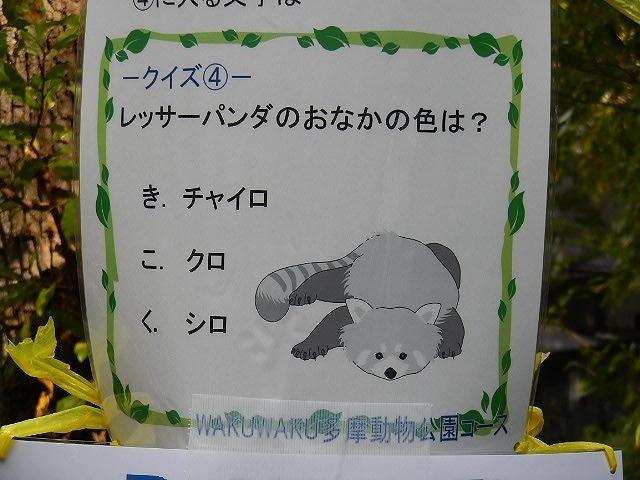 ④に入る文字は
−クイズ④−
レッサーパンダのおなかの色は？
き．チャイロ
こ．クロ
く．シロ
WAKUWAKU多摩動物公園コース